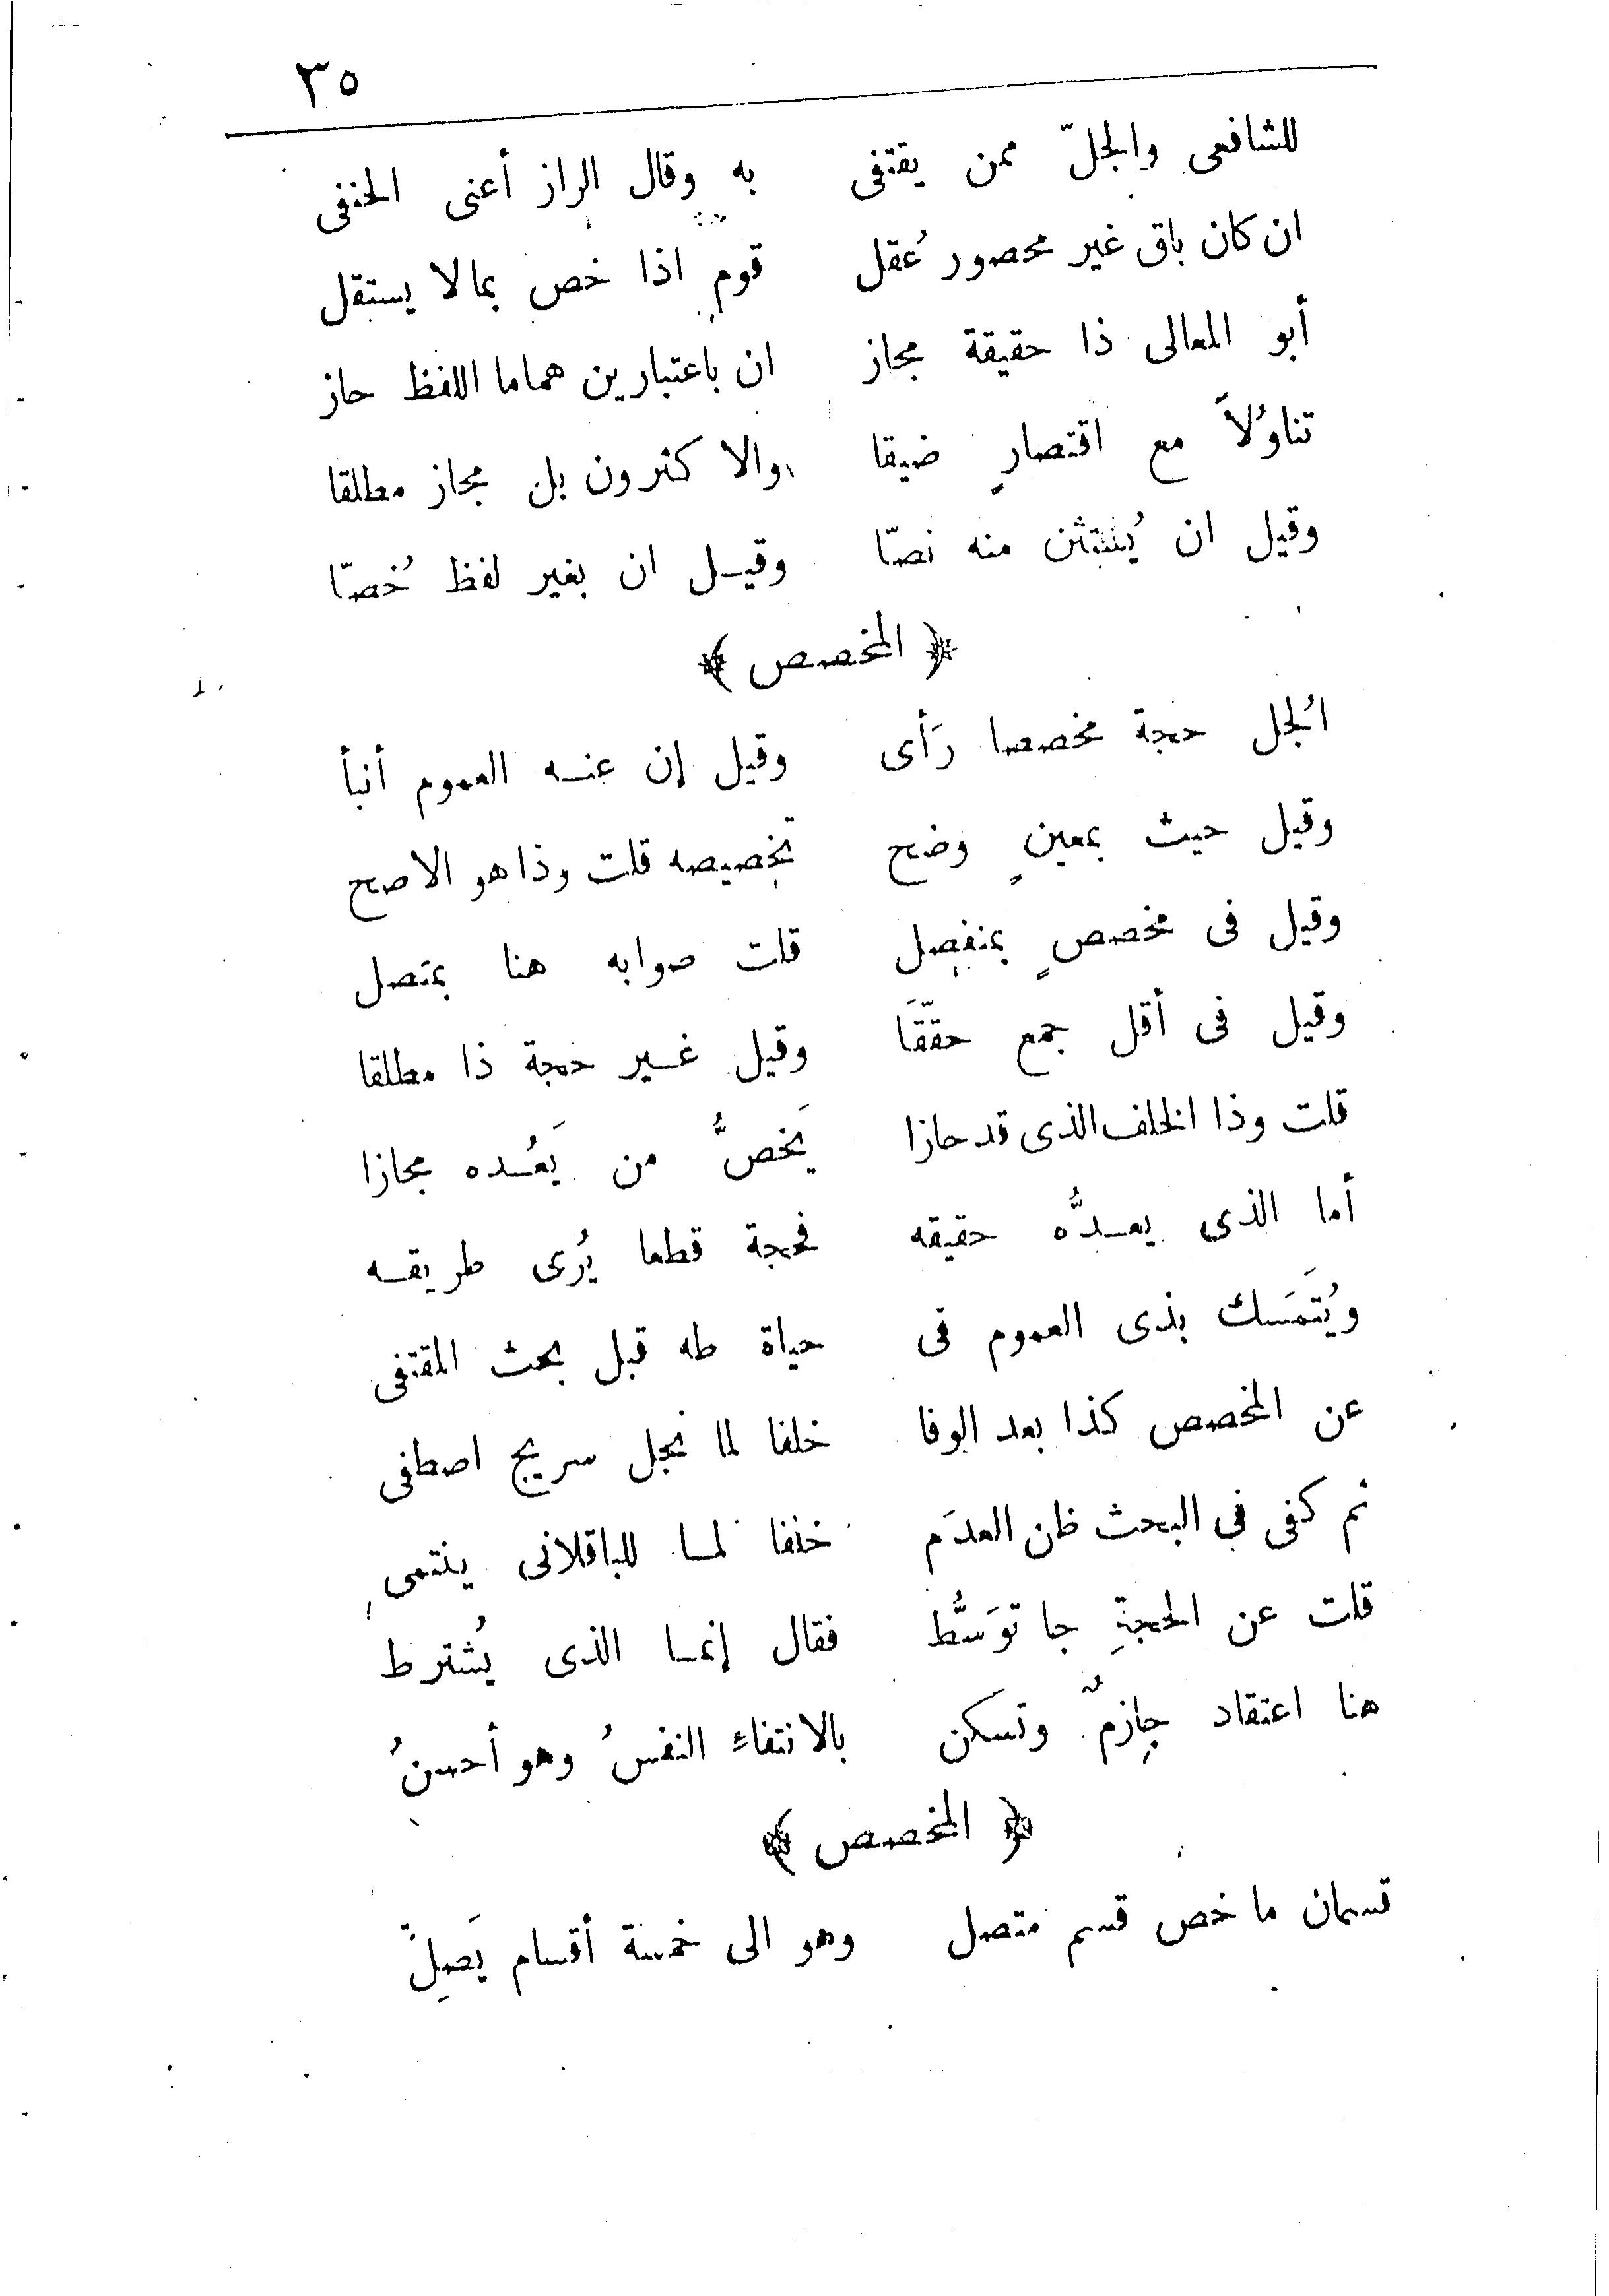 ٣٥
للشافعى والجلّ ممن يقتفى به وقال الراز أعنى الحنفى
ان كان باق غير محصور عُقل قوم اذا خص بمالا يستقل
أبو المعالى ذا حقيقة مجاز ان باعتبارين هماما اللفظ حاز
تناوُلاً مع اقتصارٍ ضيقا والاكثرون بل مجاز مطلقا
وقيل ان يُستثن منه نصّا وقيل ان بغير لفظ خُصّا
﴿ المخصص ﴾
الجُل حجة مخصصا رَأى وقيل إن عنه العموم أنبأ
وقيل حيث بمعينٍ وضح تخصيصه قلت وذا هو الاصح
وقيل فى مخصصٍ بمنفصِل قلت صوابه هنا بمتصل
وقيل فى أقل جمع حقّقَا وقيل غير حجة ذا مطلقا
قلت وذا الخلف الذى قد حازا يَخصُّ من يَعُده مجازا
أما الذى يعدُّه حقيقه فحجة قطعا يُرى طريقه
ويُتَمَسك بذى العموم فى حياة طه قبل بحث المقتفى
عن المخصص كذا بعد الوفا خلفا لما نجل سريج اصطفى
ثم كفى فى البحث ظن العدَم خلفا لما للباقلانى ينتمى
قلت عن الحجةِ جا توَسُّط فقال إنما الذى يُشترط
هنا اعتقاد جازمٌ وتسكن بالانتفاءِ النفسُ وهو أحسنُ
﴿ المخصص ﴾
قسمان ما خص قسم متصل وهو الى خمسة أقسام يَصِلْ